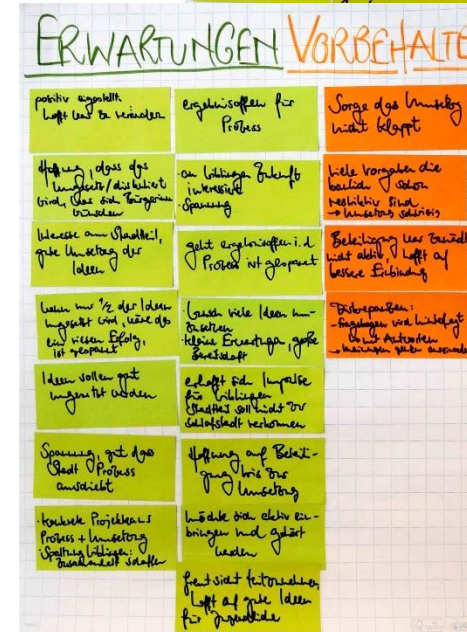 ERWARTUNGEN VORBEHALTE
positiv eingestellt
hofft was zu verändern
Hoffnung, dass das
umgesetzt/diskutiert
wird, was sich Bürger
wünschen
Interesse am Stadtteil,
gute Umsetzung der
Ideen
wenn nur 1/2 der Ideen
umgesetzt wird, wäre das
ein riesen Erfolg,
ist gespannt
Ideen sollen gut
umgesetzt werden
Spannung, gut dass
Stadt Prozess
anschiebt
· konkrete Projekte aus
Prozess + Umsetzung
· Spaltung
Zusammenhalt schaffen
ergebnisoffen für
Prozess
· an Zukunft
interessiert
· Spannung
geht ergebnisoffen i.d
Prozess ist gespannt
· Wunsch viele Ideen um-
zusetzen
· kleine Erwartungen, große
Bereitschaft
erhofft sich Impulse
für
Stadtteil soll nicht zur
Schlafstadt verkommen
Hoffnung auf Beteili-
gung bis zur
Umsetzung
möchte sich aktiv ein-
bringen und gehört
werden
freut sich teilzunehmen,
hofft auf gute Ideen
für Jugendliche
Sorge das Umsetzung
nicht klappt
viele Vorgaben die
baulich schon
restriktiv sind
→ Umsetzung schwierig
Beteiligung war zunächst
nicht aktiv, hofft auf
bessere Einbindung
- Fragebogen wird hinterfragt
somit Antworten
→ Meinungen gehen